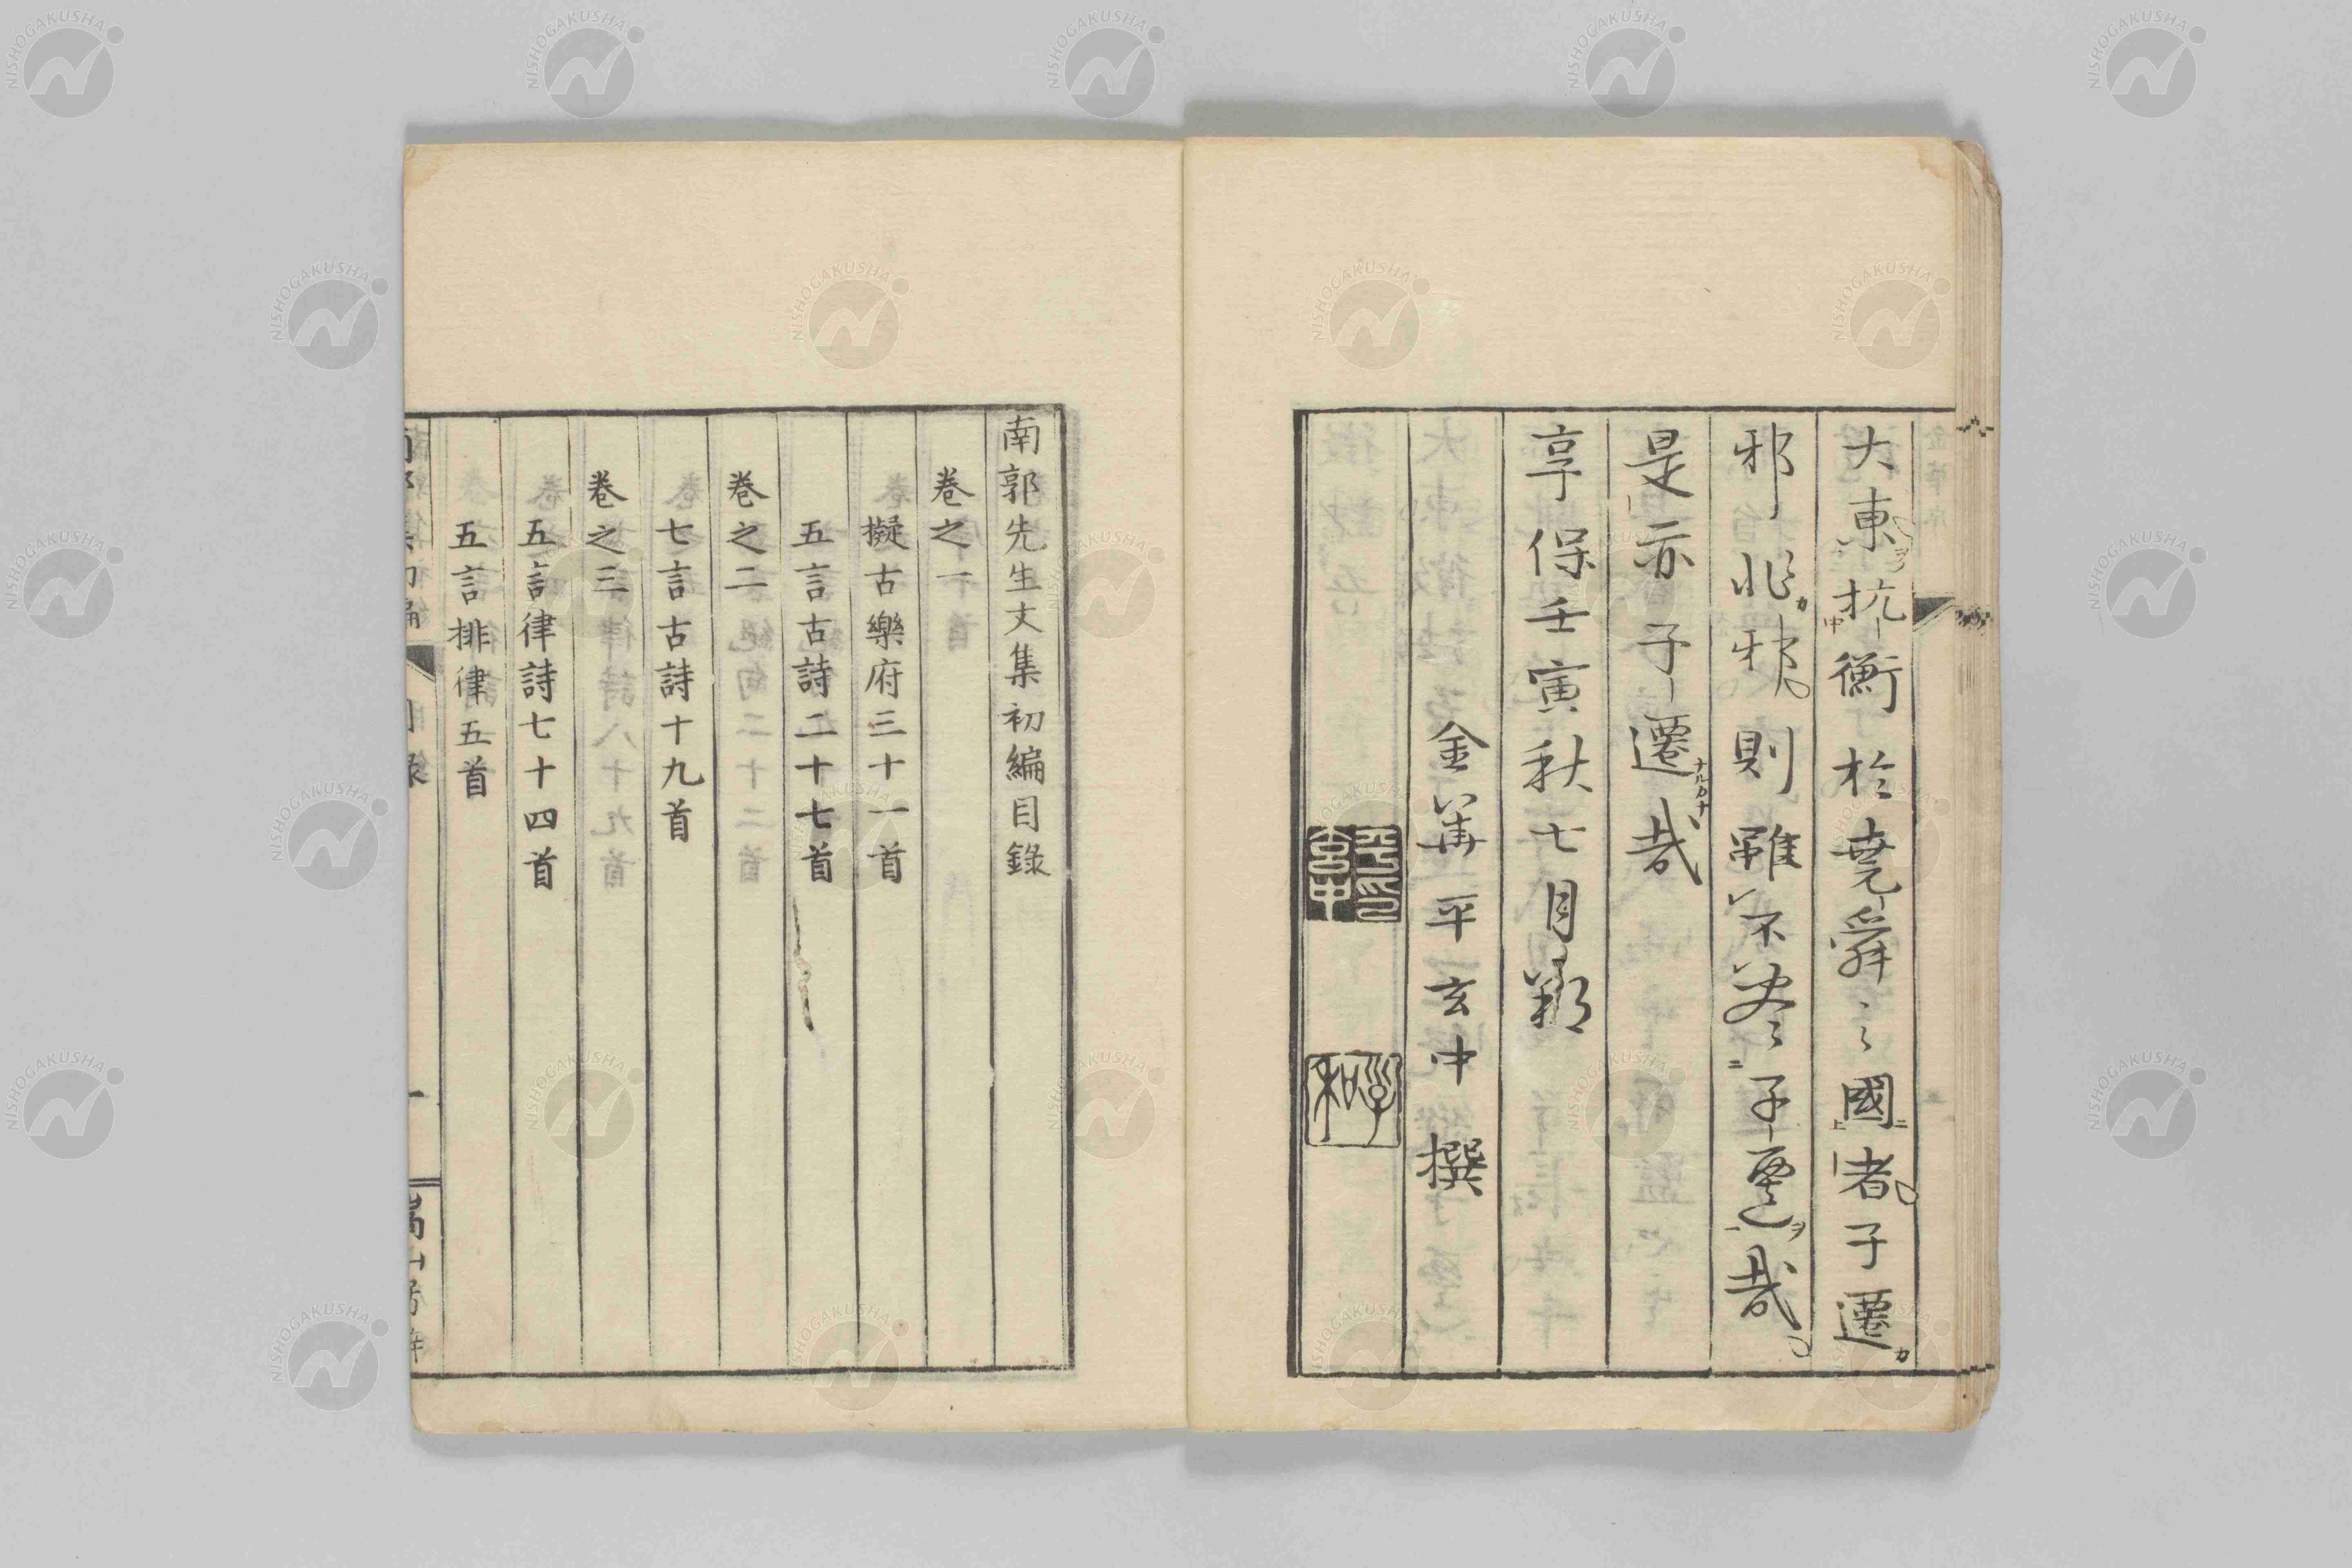 大東抗衡於堯舜之國者子遷
邪非邪則雖不盡子遷哉
是亦子遷哉
享保壬寅秋七月朔
金華平玄中撰
子和
南郭先生文集初編目錄
卷之一
擬古樂府三十一首
五言古詩二十七首
卷之二
七言古詩十九首
卷之三
五言律詩七十四首
五言排律五首
目錄
一
NISHOGAKUSHA